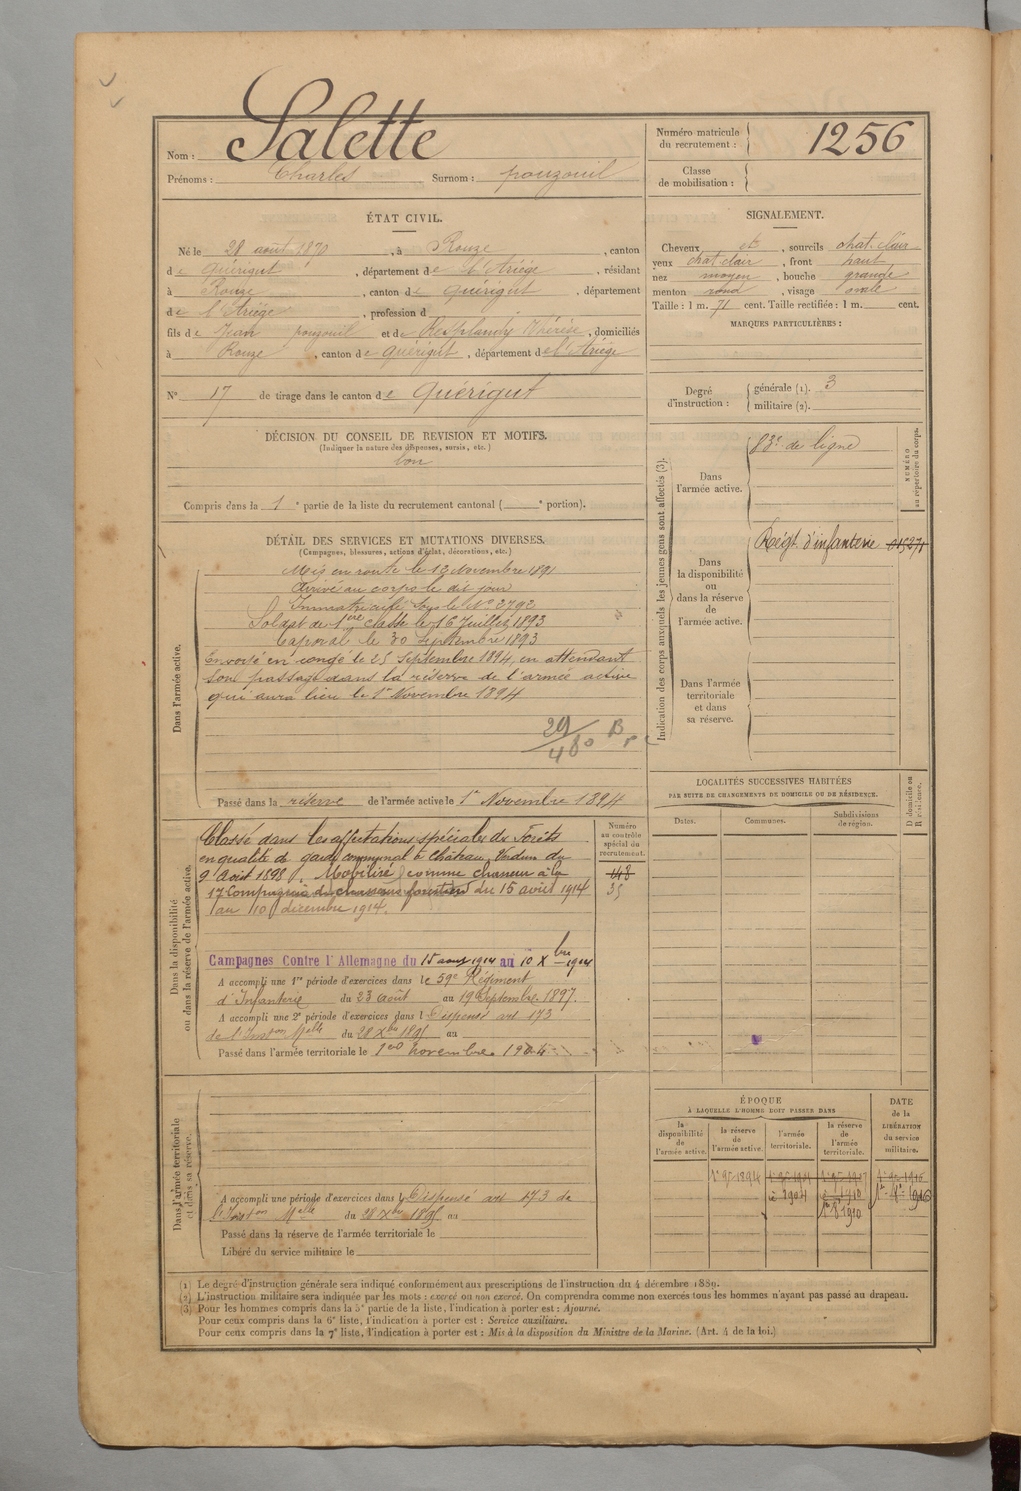 Nom : Salette
Prénoms : Charles Surnom : pouzouil
Numéro matricule du recrutement : 1256
Classe de mobilisation :
ÉTAT CIVIL.
Né le 28 août 1870, à Rouze, canton
de Quérigut, département de l'Ariège, résidant
à Rouze, canton de Quérigut, département
de l'Ariège, profession d
fils de Jean pouzouil et de Resplandy Thérèse, domiciliés
à Rouze, canton de Quérigut, département de l'Ariège
N° 17 de tirage dans le canton de Quérigut
SIGNALEMENT.
Cheveux et, sourcils chat. clair
yeux chat. clair, front haut
nez moyen, bouche grande
menton rond, visage ovale
Taille : 1 m. 71 cent. Taille rectifiée : 1 m. cent.
MARQUES PARTICULIÈRES :
Degré d'instruction : générale (1). 3
militaire (2).
DÉCISION DU CONSEIL DE REVISION ET MOTIFS.
(Indiquer la nature des dispenses, sursis, etc.)
bon
Compris dans la 1e partie de la liste du recrutement cantonal ( e portion).
DÉTAIL DES SERVICES ET MUTATIONS DIVERSES.
(Campagnes, blessures, actions d'éclat, décorations, etc.)
Dans l'armée active.
Mis en route le 13 Novembre 1891
Arrivé au corps le dit jour
Immatriculé sous le N° 2792
Soldat de 1ère classe le 16 Juillet 1893
Caporal le 30 Septembre 1893
Envoyé en congé le 25 Septembre 1894, en attendant
son passage dans la réserve de l'armée active
qui aura lieu le 1er Novembre 1894
Passé dans la réserve de l'armée active le 1er Novembre 1894
Indication des corps auxquels les jeunes gens sont affectés (3).
NUMÉRO au répertoire du corps.
Dans l'armée active.
83e de ligne
Dans la disponibilité ou dans la réserve de l'armée active.
Régt d'infanterie 015271
Dans l'armée territoriale et dans sa réserve.
LOCALITÉS SUCCESSIVES HABITÉES
PAR SUITE DE CHANGEMENTS DE DOMICILE OU DE RÉSIDENCE.
Dates. Communes. Subdivisions de région. D domicile ou R résidence.
Dans la disponibilité ou dans la réserve de l'armée active.
Numéro au contrôle spécial du recrutement.
148
35
Classé dans les affectations spéciales des Forêts
en qualité de garde communal à Château Verdun du
9 Août 1898. Mobilisé comme chasseur à la
17 Compagnie de chasseurs forestiers du 15 1914
au 10 décembre 1914.
Campagnes Contre l'Allemagne du 15 1914 au 10 Xbre 1914
A accompli une 1re période d'exercices dans le 59e Régiment
d'Infanterie du 23 août au 19 Septembre 1897.
A accompli une 2e période d'exercices dans l Dispensé art 173
de l'Inston Melle du 28 Xbre 1895 au
Passé dans l'armée territoriale le 1er novembre 1904
Dans l'armée territoriale et dans sa réserve.
A accompli une période d'exercices dans l Dispensé art 173 de
l'Inston Melle du 28 Xbre 1895 au
Passé dans la réserve de l'armée territoriale le
Libéré du service militaire le
ÉPOQUE
À LAQUELLE L'HOMME DOIT PASSER DANS
la disponibilité de l'armée active. la réserve de l'armée active. l'armée territoriale. la réserve de l'armée territoriale. DATE de la LIBÉRATION du service militaire.
(1) Le degré d'instruction générale sera indiqué conformément aux prescriptions de l'instruction du 4 décembre 1889.
(2) L'instruction militaire sera indiquée par les mots : exercé ou non exercé. On comprendra comme non exercés tous les hommes n'ayant pas passé au drapeau.
(3) Pour les hommes compris dans la 5e partie de la liste, l'indication à porter est : Ajourné.
Pour ceux compris dans la 6e liste, l'indication à porter est : Service auxiliaire.
Pour ceux compris dans la 7e liste, l'indication à porter est : Mis à la disposition du Ministre de la Marine. (Art. 4 de la loi.)